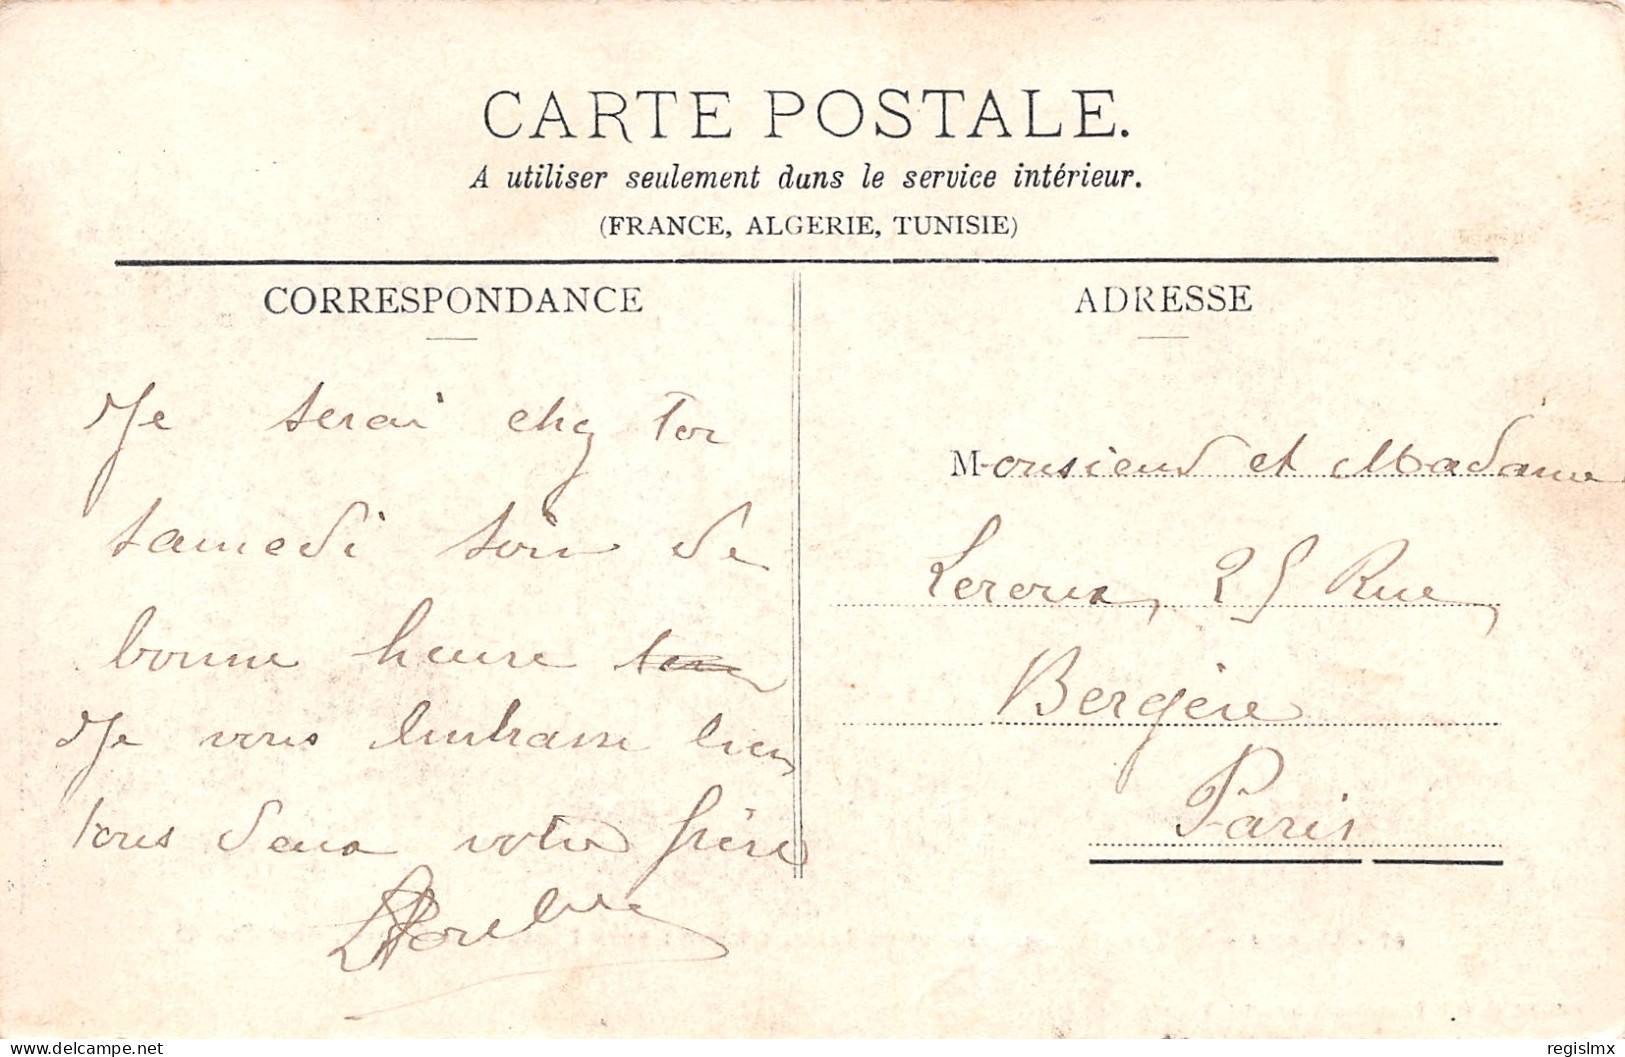 CARTE POSTALE.
A utiliser seulement dans le service intérieur.
(FRANCE, ALGERIE, TUNISIE)
CORRESPONDANCE
Je serai chez toi
samedi soir de
bonne heure
Je vous embrasse bien
tous deux votre frère
ADRESSE
Monsieur et Madame
Leroux, 25 Rue
Bergère
Paris
delcampe.net
regislmx